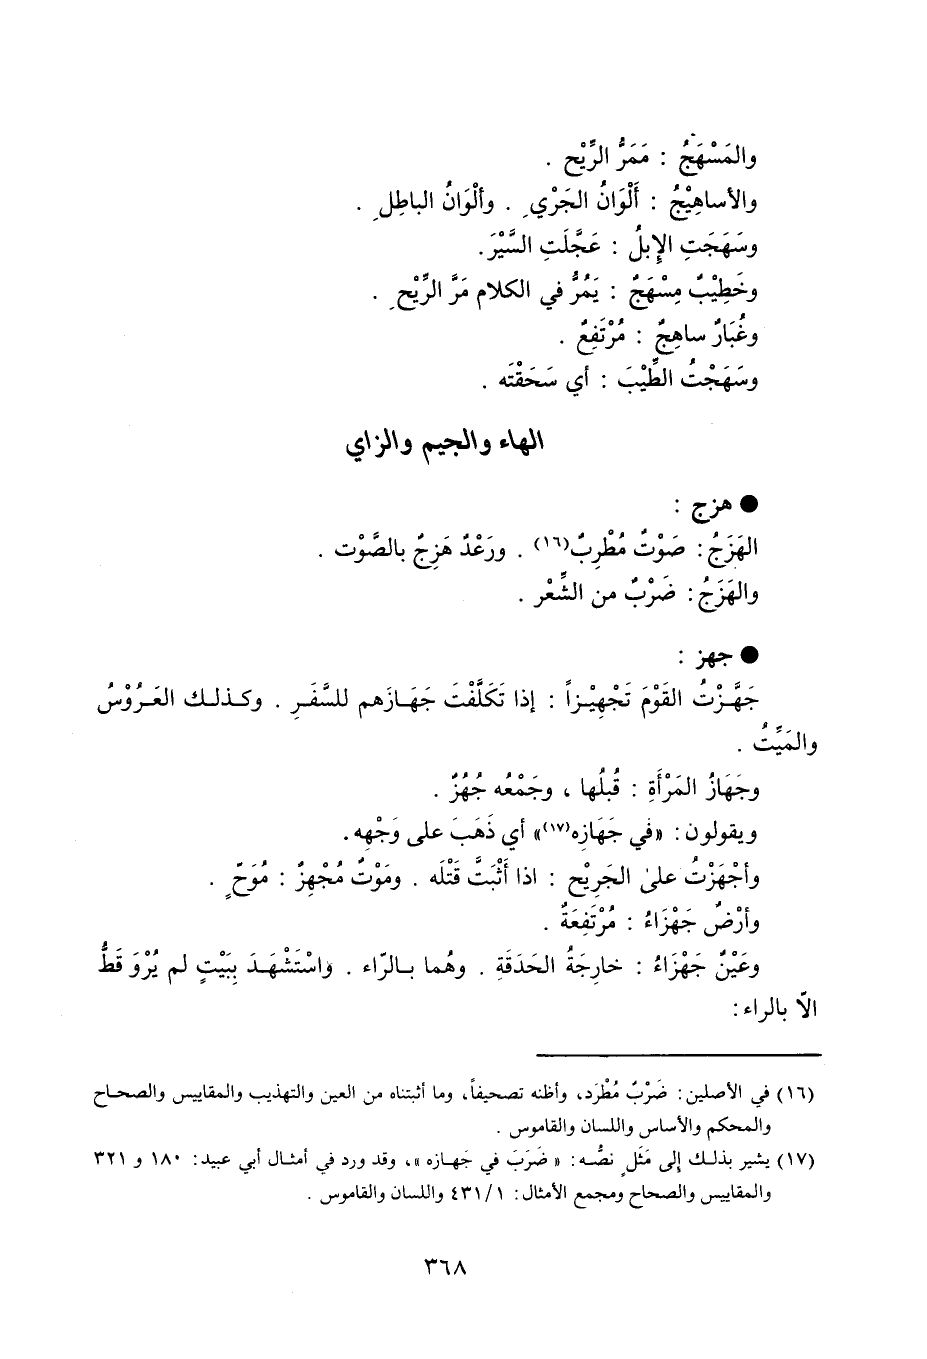 والمَسْهَجُ : مَمَرُّ الرِّيْح .
والأساهِيْجُ : أَلْوَانُ الجَرْيِ . وألْوَانُ الباطِلِ .
وسَهَجَتِ الإِبلُ : عَجَّلَتِ السَّيْرَ.
وخَطِيْبٌ مِسْهَجٌ : يَمُرُّ في الكلام مَرَّ الرِّيْحِ .
وغُبَارٌ ساهِجٌ : مُرْتَفِعٌ .
وسَهَجْتُ الطِّيْبَ : أي سَحَقْتَه .
الهاء والجيم والزاي
● هزج :
الهَزَجُ: صَوْتٌ مُطْرِبٌ(١٦) . ورَعْدٌ هَزِجٌ بالصَّوْت .
والهَزَجُ: ضَرْبٌ من الشِّعْر .
● جهز :
جَهَّزْتُ القَوْمَ تَجْهِيْزاً : إذا تَكَلَّفْتَ جَهَازَهم للسَّفَرِ . وكذلك العَرُوْسُ
والمَيِّتُ .
وجَهَازُ المَرْأَةِ : قُبلُها ، وجَمْعُه جُهُزٌ .
ويقولون: «في جَهَازِه(١٧)» أي ذَهَبَ على وَجْهِه.
وأجْهَزْتُ على الجَرِيْح : اذا أَثْبَتَّ قَتْلَه . ومَوْتٌ مُجْهِزٌ : مُوَحٍّ .
وأرْضٌ جَهْزَاءُ : مُرْتَفِعَةٌ .
وعَيْنٌ جَهْزَاءُ : خارِجَةُ الحَدَقَةِ . وهُما بالرّاء . واسْتَشْهَدَ بِبَيْتٍ لم يُرْوَ قَطُّ
الاّ بالراء:
(١٦) في الأصلين: ضَرْبٌ مُطْرَد، وأظنه تصحيفاً، وما أثبتناه من العين والتهذيب والمقاييس والصحاح
والمحكم والأساس واللسان والقاموس .
(١٧) يشير بذلك إلى مَثَلٍ نصُّه: « ضَرَبَ في جَهازه »، وقد ورد في أمثال أبي عبيد: ١٨٠ و ٣٢١
والمقاييس والصحاح ومجمع الأمثال: ١/ ٤٣١ واللسان والقاموس .
٣٦٨